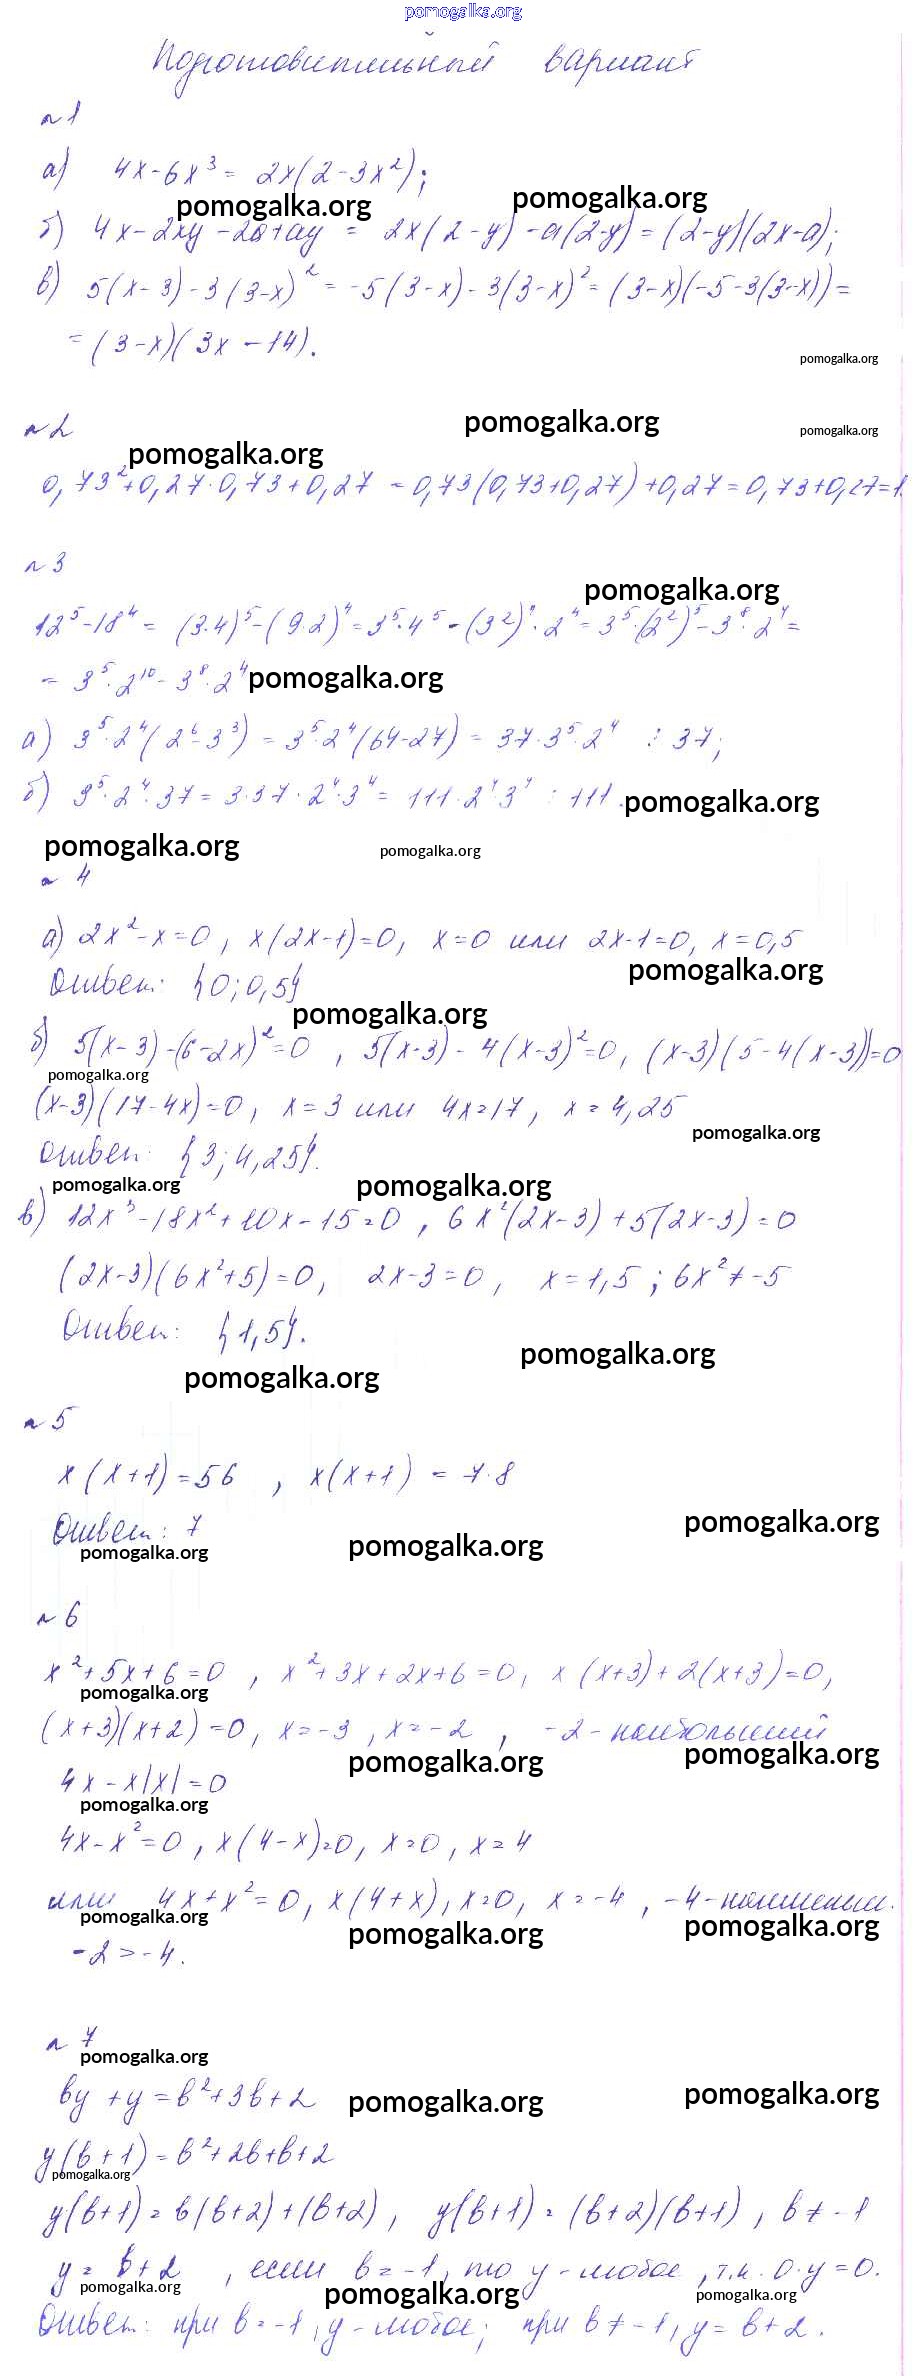 pomogalka.org
Подготовительный вариант
№1
а) 4x-6x³= 2x(2-3x²);
pomogalka.org pomogalka.org
б) 4x-2xy-2a+ay = 2x(2-y)-a(2-y)=(2-y)(2x-a);
в) 5(x-3)-3(3-x)²= -5(3-x)-3(3-x)²=(3-x)(-5-3(3-x))=
=(3-x)(3x-14).
pomogalka.org
№2
pomogalka.org pomogalka.org
pomogalka.org
0,73²+0,27·0,73+0,27 =0,73(0,73+0,27)+0,27=0,73+0,27=1.
№3
pomogalka.org
12⁵-18⁴= (3·4)⁵-(9·2)⁴=3⁵·4⁵-(3²)⁴·2⁴=3⁵·(2²)⁵-3⁸·2⁴=
= 3⁵·2¹⁰-3⁸·2⁴ pomogalka.org
а) 3⁵·2⁴(2⁶-3³) = 3⁵·2⁴(64-27) = 37·3⁵·2⁴ ⋮ 37;
б) 3⁵·2⁴·37= 3·37·2⁴·3⁴= 111·2⁴·3⁴ ⋮ 111. pomogalka.org
pomogalka.org pomogalka.org
№4
а) 2x²-x=0, x(2x-1)=0, x=0 или 2x-1=0, x=0,5
pomogalka.org
Ответ: {0;0,5}
pomogalka.org
б) 5(x-3)-(6-2x)²=0, 5(x-3)-4(x-3)²=0, (x-3)(5-4(x-3))=0
pomogalka.org
(x-3)(17-4x)=0, x=3 или 4x=17, x=4,25
pomogalka.org
Ответ: {3;4,25}.
pomogalka.org pomogalka.org
в) 12x³-18x²+10x-15=0, 6x²(2x-3)+5(2x-3)=0
(2x-3)(6x²+5)=0, 2x-3=0, x=1,5; 6x²≠-5
Ответ: {1,5}.
pomogalka.org pomogalka.org
№5
x(x+1)=56, x(x+1) = 7·8
Ответ: 7
pomogalka.org pomogalka.org pomogalka.org
№6
x²+5x+6=0, x²+3x+2x+6=0, x(x+3)+2(x+3)=0,
pomogalka.org
(x+3)(x+2)=0, x=-3, x=-2, -2-наибольший
pomogalka.org pomogalka.org
4x-x|x|=0
pomogalka.org
4x-x²=0, x(4-x)=0, x=0, x=4
или 4x+x²=0, x(4+x), x=0, x=-4, -4-наименьш.
pomogalka.org pomogalka.org pomogalka.org
-2>-4.
№7
pomogalka.org
by+y=b²+3b+2
pomogalka.org pomogalka.org
y(b+1)=b²+2b+b+2
pomogalka.org
y(b+1)=b(b+2)+(b+2), y(b+1)=(b+2)(b+1), b≠-1
y=b+2, если b=-1, то y-любое, т.к. 0·y=0.
pomogalka.org pomogalka.org pomogalka.org
Ответ: при b=-1, y-любое; при b≠-1, y=b+2.